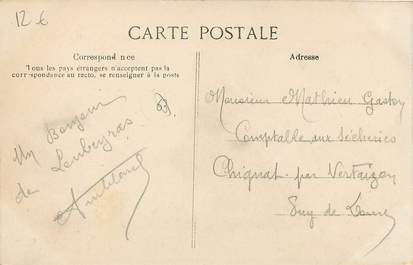 12 €
CARTE POSTALE
Correspondance
Tous les pays étrangers n'acceptent pas la
correspondance au recto, se renseigner à la poste
Adresse
Un Bonjour
de Loubeyras
63
Monsieur Mathieu Gaston
Comptable aux Sécheries
Chignat par Vertaizon
Puy de Dôme